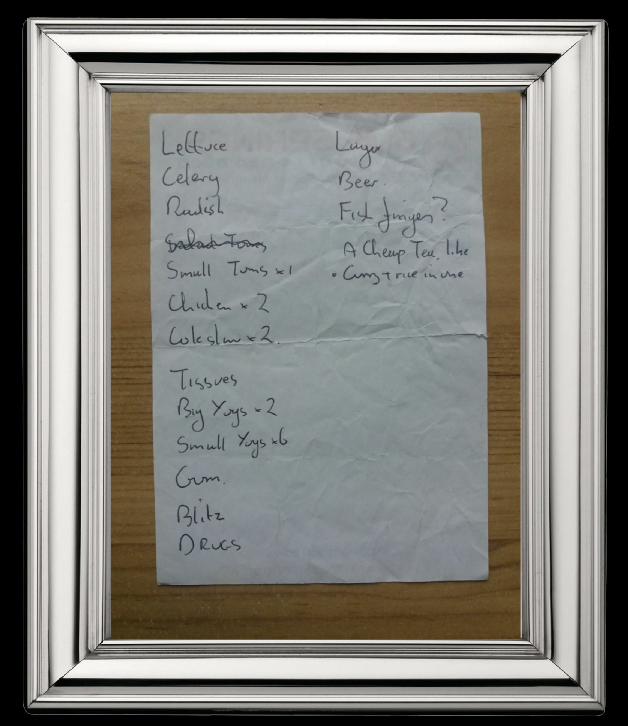 Lettuce
Celery
Radish
Salad Toms
Small Toms x1
Chicken x 2
Coleslaw x 2.
Tissues
Big Yogs x 2
Small Yogs x6
Gum.
Blitz
DRUGS
Lager
Beer.
Fish fingers?
A Cheap Tea, like
• Curry + rice in one